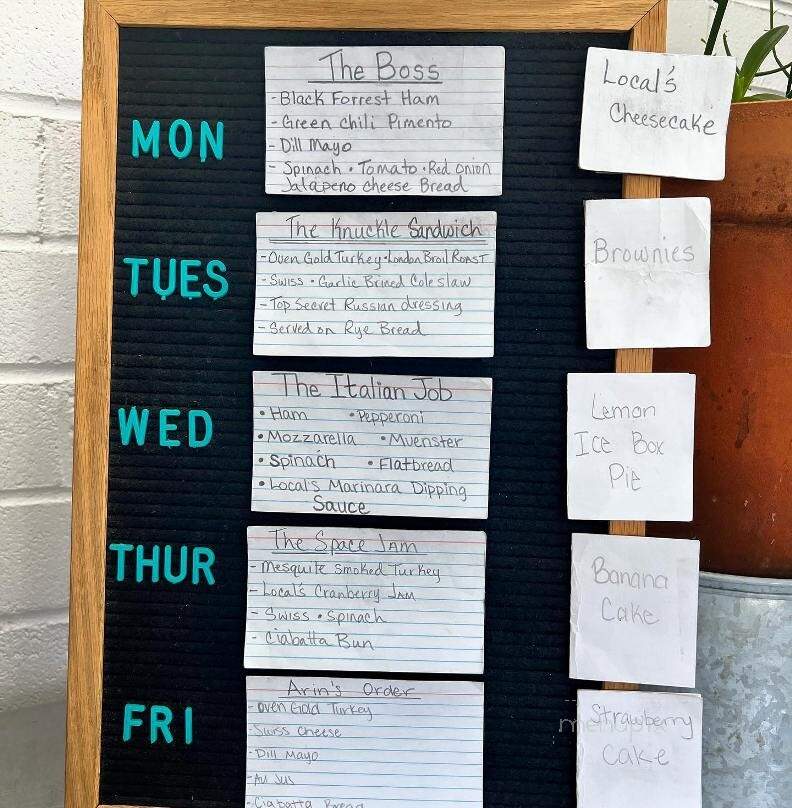 MON
The Boss
- Black Forrest Ham
- Green chili Pimento
- Dill Mayo
- Spinach • Tomato • Red onion
Jalapeno cheese Bread
Local's
Cheesecake
TUES
The Knuckle Sandwich
- Oven Gold Turkey • London Broil Roast
- Swiss • Garlic Brined Coleslaw
- Top Secret Russian dressing
- Served on Rye Bread
Brownies
WED
The Italian Job
• Ham • Pepperoni
• Mozzarella • Muenster
• Spinach • Flatbread
• Local's Marinara Dipping
Sauce
Lemon
Ice Box
Pie
THUR
The Space JAM
- Mesquite smoked Turkey
- Local's Cranberry JAM
- Swiss • Spinach
- Ciabatta Bun
Banana
Cake
FRI
Arin's Order
- Oven Gold Turkey
- Swiss Cheese
- Dill Mayo
- Au Jus
- Ciabatta Bread
Strawberry
Cake